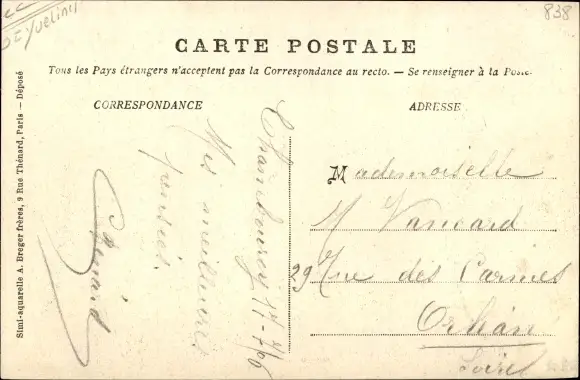 838
CARTE POSTALE
Tous les Pays étrangers n'acceptent pas la Correspondance au recto. — Se renseigner à la Poste.
CORRESPONDANCE
ADRESSE
Simi-aquarelle A. Breger frères, 9 Rue Thénard, Paris — Déposé
Chambourcy
Mes meilleures
pensées.
Mademoiselle
29 Rue des Carmes
Orléans
Loiret